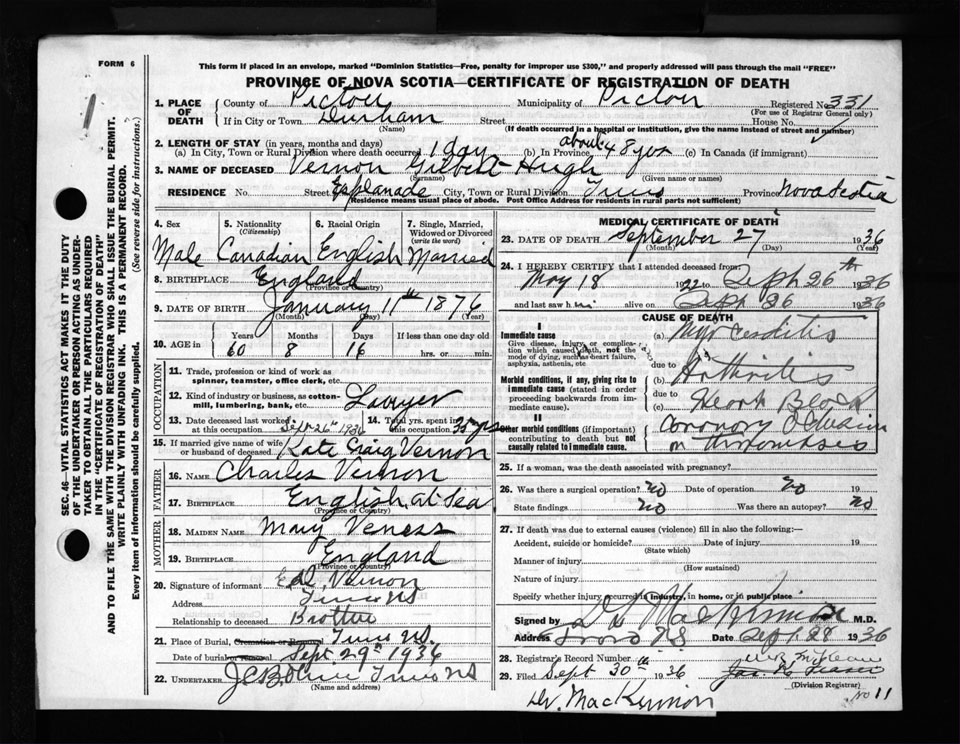 FORM 6
This form if placed in an envelope, marked "Dominion Statistics—Free, penalty for improper use $300," and properly addressed will pass through the mail "FREE"
PROVINCE OF NOVA SCOTIA—CERTIFICATE OF REGISTRATION OF DEATH
1. PLACE OF DEATH County of Pictou Municipality of Pictou Registered No. 331
(For use of Registrar General only)
If in City or Town Durham Street House No.
(Name) (If death occurred in a hospital or institution, give the name instead of street and number)
2. LENGTH OF STAY (in years, months and days)
(a) In City, Town or Rural Division where death occurred 1 day (b) In Province about 48 yrs (c) In Canada (if immigrant)
3. NAME OF DECEASED Vernon Gilbert Hugh
(Surname) (Given name or names)
RESIDENCE No. Street Esplanade City, Town or Rural Division Truro Province Nova Scotia
(Residence means usual place of abode. Post Office Address for residents in rural parts not sufficient)
4. Sex 5. Nationality (Citizenship) 6. Racial Origin 7. Single, Married, Widowed or Divorced (write the word)
Male Canadian English Married
8. BIRTHPLACE England
(Province or Country)
9. DATE OF BIRTH January 11th 1876
(Month) (Day) (Year)
10. AGE in Years Months Days If less than one day old
60 8 16 hrs. or min.
OCCUPATION
11. Trade, profession or kind of work as spinner, teamster, office clerk, etc.
12. Kind of industry or business, as cotton-mill, lumbering, bank, etc. Lawyer
13. Date deceased last worked at this occupation Sept 26th 1936 14. Total yrs. spent in this occupation 35 yrs
15. If married give name of wife or husband of deceased Kate Craig Vernon
FATHER
16. NAME Charles Vernon
17. BIRTHPLACE English at Sea
(Province or Country)
MOTHER
18. MAIDEN NAME May Veness
19. BIRTHPLACE England
(Province or Country)
20. Signature of informant Vernon
Address Truro NS
Relationship to deceased Brother
21. Place of Burial, Cremation or Removal Truro N.S.
Date of burial or removal Sept 29th 1936
22. UNDERTAKER Truro NS
(Name and address)
MEDICAL CERTIFICATE OF DEATH
23. DATE OF DEATH September 27 1936
(Month) (Day) (Year)
24. I HEREBY CERTIFY that I attended deceased from:
May 18 1922 to Sept 26th 1936
and last saw him alive on Sept 26 1936
CAUSE OF DEATH
I
Immediate cause
Give disease, injury, or complication which caused death, not the mode of dying, such as heart failure, asphyxia, asthenia, etc
(a) Myocarditis
due to
Morbid conditions, if any, giving rise to immediate cause (stated in order proceeding backwards from immediate cause).
(b) Arthritis
due to
(c) Heart Block
II
Other morbid conditions (if important) contributing to death but not causally related to immediate cause.
Coronary Occlusion
or Thrombosis
25. If a woman, was the death associated with pregnancy?
26. Was there a surgical operation? No Date of operation No 19
State findings No Was there an autopsy? No
27. If death was due to external causes (violence) fill in also the following:
Accident, suicide or homicide? Date of injury 19
(State which)
Manner of injury
(How sustained)
Nature of injury
Specify whether injury occurred in industry, in home, or in public place
Signed by MacKinnon M.D.
Address Truro NS Date Sept. 28 1936
28. Registrar's Record Number
29. Filed Sept 30th 1936
(Division Registrar)
No 11
Dr. MacKinnon
SEC. 46—VITAL STATISTICS ACT MAKES IT THE DUTY
OF THE UNDERTAKER OR PERSON ACTING AS UNDER-
TAKER TO OBTAIN ALL THE PARTICULARS REQUIRED
IN THE "CERTIFICATE OF REGISTRATION OF DEATH"
AND TO FILE THE SAME WITH THE DIVISION REGISTRAR WHO SHALL ISSUE THE BURIAL PERMIT.
WRITE PLAINLY WITH UNFADING INK. THIS IS A PERMANENT RECORD.
Every item of information should be carefully supplied. (See reverse side for instructions.)